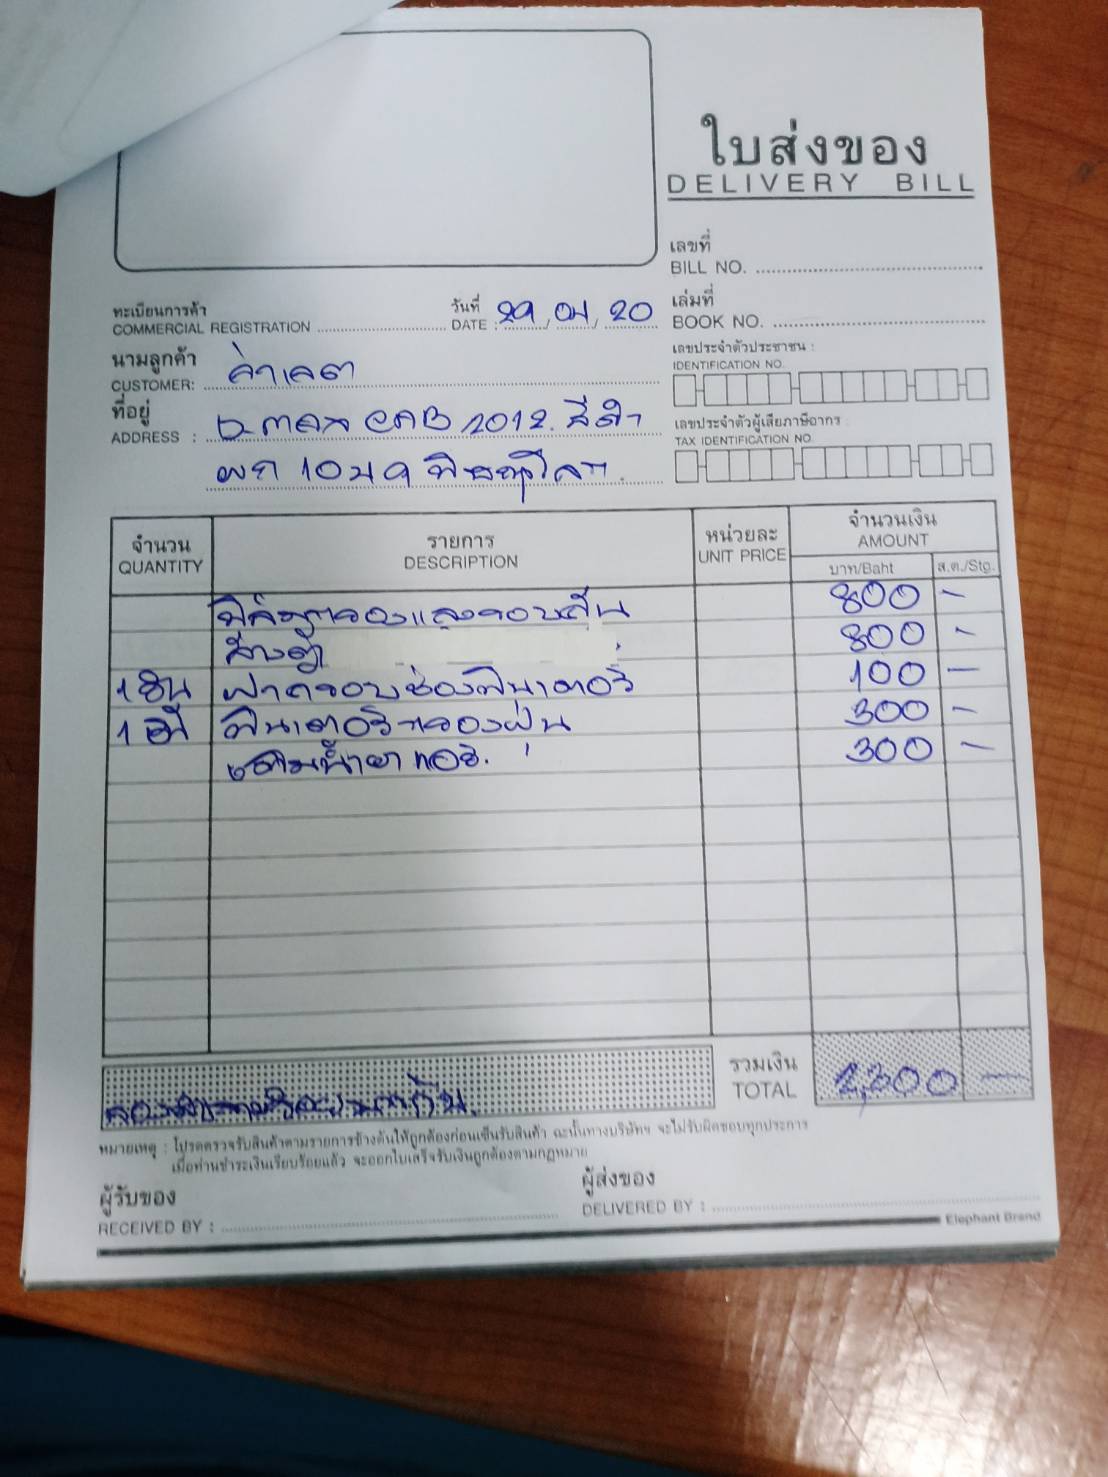 ใบส่งของ
DELIVERY BILL
เลขที่
BILL NO.
ทะเบียนการค้า
COMMERCIAL REGISTRATION
วันที่
DATE : 29/04/20
เล่มที่
BOOK NO.
นามลูกค้า
CUSTOMER:
เลขประจำตัวประชาชน :
IDENTIFICATION NO.
ที่อยู่
ADDRESS : 2012. สีดำ
เลขประจำตัวผู้เสียภาษีอากร
TAX IDENTIFICATION NO.
ผก 10 พิษณุโลก.
จำนวน
QUANTITY
รายการ
DESCRIPTION
หน่วยละ
UNIT PRICE
จำนวนเงิน
AMOUNT
บาท/Baht
ส.ต./Stg.
ฟิล์มกรองแสง 800 -
ล้างตู้ 800 -
1 ชิ้น ฝาครอบช่องฟิลเตอร์ 100 -
1 ฟิลเตอร์กรองฝุ่น 300 -
เติมน้ำยาแอร์. 300 -
รวมเงิน
TOTAL 2,300 -
หมายเหตุ : โปรดตรวจรับสินค้าตามรายการข้างต้นให้ถูกต้องก่อนเซ็นรับสินค้า ฉะนั้นทางบริษัทฯ จะไม่รับผิดชอบทุกประการ
เมื่อท่านชำระเงินเรียบร้อยแล้ว จะออกใบเสร็จรับเงินถูกต้องตามกฎหมาย
ผู้รับของ
RECEIVED BY :
ผู้ส่งของ
DELIVERED BY :
Elephant Brand